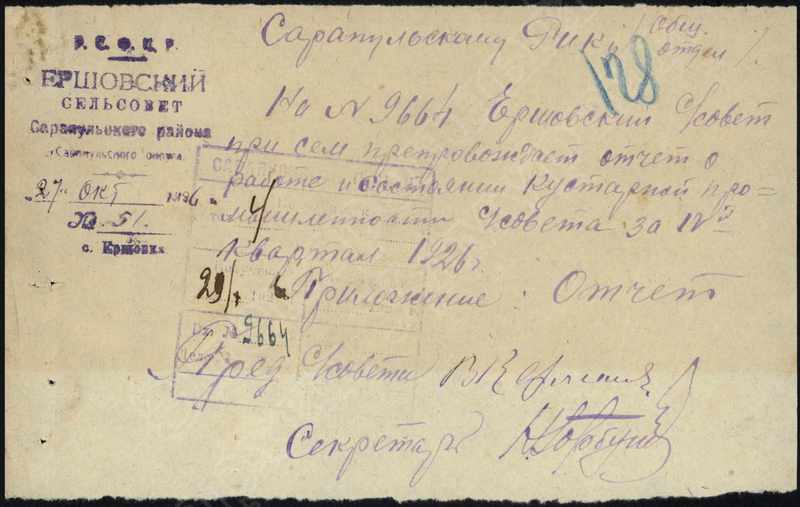 Р.С.Ф.С.Р.
ЕРШОВСКИЙ
СЕЛЬСОВЕТ
Сарапульского района
Сарапульского округа
„27" окт 1926
№ 51.
с. Ершовка
Сарапульскому Рику /общ.
отдел/.
128
На № 9664 Ершовский С/совет
при сем препровождает отчет о
работе и состоянии кустарной про=
мышленности С/совета за IV й
квартал 1926 г.
Приложение: Отчет
29/X
Вх. №
9664
Пред С/совета
Секретарь